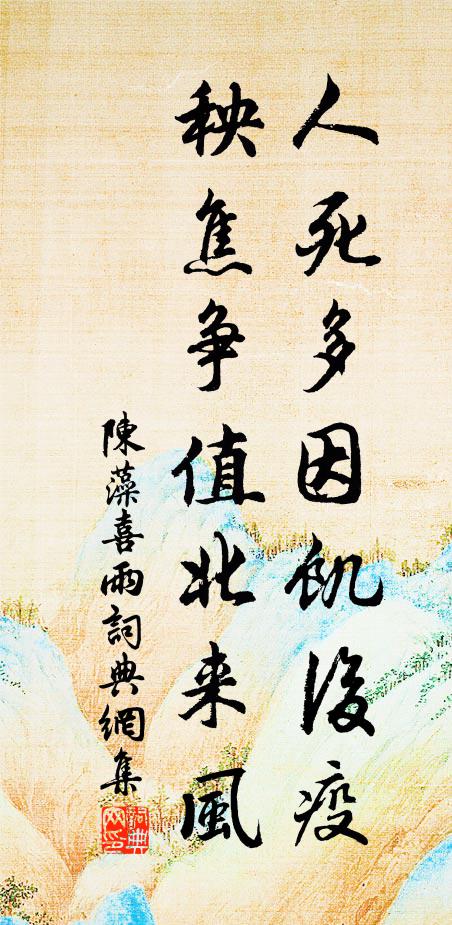 人死多因飢後疫
秧焦争值北来風
陳藻喜雨詞典網集
詞典网印